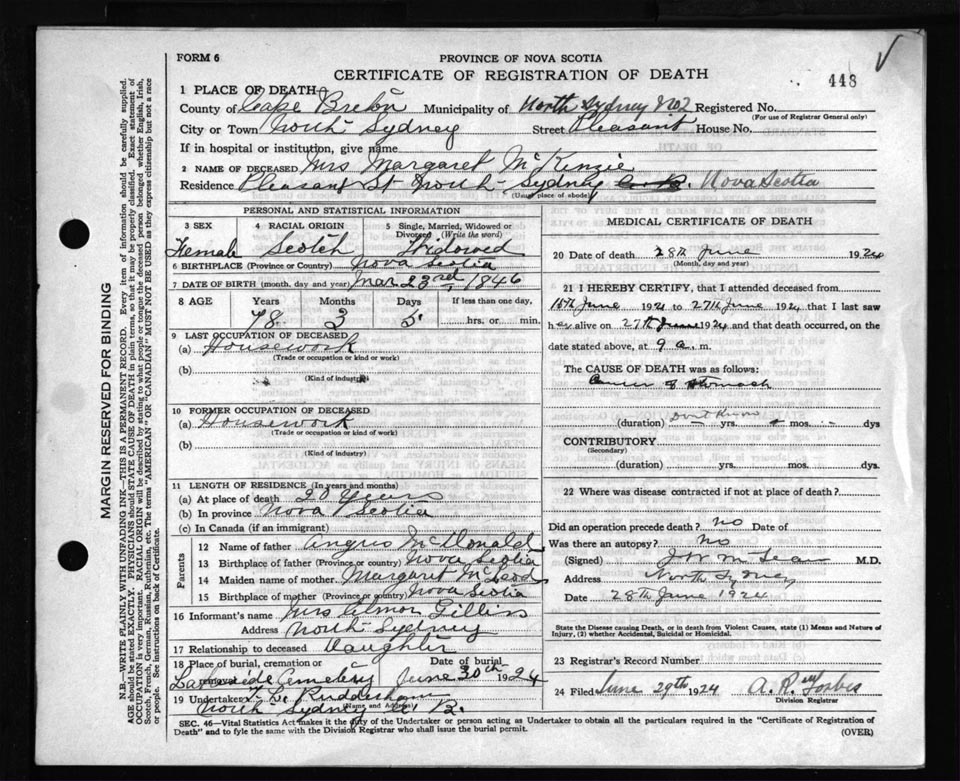 FORM 6
PROVINCE OF NOVA SCOTIA
CERTIFICATE OF REGISTRATION OF DEATH
448
1 PLACE OF DEATH
County of Cape Breton Municipality of North Sydney No2 Registered No.
(For use of Registrar General only)
City or Town North Sydney Street Pleasant House No.
If in hospital or institution, give name
2 NAME OF DECEASED Mrs Margaret McKinzie
Residence Pleasant St North Sydney Nova Scotia
(Usual place of abode)
PERSONAL AND STATISTICAL INFORMATION
3 SEX 4 RACIAL ORIGIN 5 Single, Married, Widowed or Divorced (Write the word)
Female Scotch Widowed
6 BIRTHPLACE (Province or Country) Nova Scotia
7 DATE OF BIRTH (month, day and year) Mar 23rd, 1846
8 AGE Years Months Days If less than one day,
78 3 5 hrs. or min.
9 LAST OCCUPATION OF DECEASED
(a) Housework
(Trade or occupation or kind or work)
(b)
(Kind of industry)
10 FORMER OCCUPATION OF DECEASED
(a) Housework
(Trade or occupation or kind of work)
(b)
(Kind of industry)
11 LENGTH OF RESIDENCE (In years and months)
(a) At place of death 20 Years
(b) In province Nova Scotia
(c) In Canada (if an immigrant)
Parents
12 Name of father Angus McDonald
13 Birthplace of father (Province or country) Nova Scotia
14 Maiden name of mother Margaret McLeod
15 Birthplace of mother (Province or country) Nova Scotia
16 Informant's name Mrs Elmon Fillins
Address North Sydney
17 Relationship to deceased Daughter
18 Place of burial, cremation or removal Date of burial
Cemetery June 30th 1924
19 Undertaker
(Name and Address)
North Sydney
MEDICAL CERTIFICATE OF DEATH
20 Date of death 28th June 1924
(Month, day and year)
21 I HEREBY CERTIFY, that I attended deceased from
June 1924 to 27th June 1924 that I last saw
her alive on 27th June 1924 and that death occurred, on the
date stated above, at 9 a. m.
The CAUSE OF DEATH was as follows:
Cancer of Stomach
(duration) Dont Know yrs. mos. dys
CONTRIBUTORY
(Secondary)
(duration) yrs. mos. dys
22 Where was disease contracted if not at place of death?
Did an operation precede death? no Date of
Was there an autopsy? no
(Signed) M.D.
Address North Sydney
Date 28th June 1924
State the Disease causing Death, or in death from Violent Causes, state (1) Means and Nature of
Injury, (2) whether Accidental, Suicidal or Homicidal.
23 Registrar's Record Number
24 Filed June 29th 1924 A. R. Forbes
Division Registrar
SEC. 46—Vital Statistics Act makes it the duty of the Undertaker or person acting as Undertaker to obtain all the particulars required in the "Certificate of Registration of
Death" and to fyle the same with the Division Registrar who shall issue the burial permit.
(OVER)
MARGIN RESERVED FOR BINDING
N.B.—WRITE PLAINLY WITH UNFADING INK—THIS IS A PERMANENT RECORD. Every item of information should be carefully supplied.
AGE should be stated EXACTLY. PHYSICIANS should STATE CAUSE OF DEATH in plain terms, so that it may be properly classified. Exact statement of
OCCUPATION is very important. RACIAL ORIGIN will be described by stating to what people or tongue the deceased person belonged whether English, Irish,
Scotch, French, German, Russian, Ruthenian, etc. The terms "AMERICAN" OR "CANADIAN" MUST NOT BE USED as they express citizenship but not a race
or people. See instructions on back of Certificate.